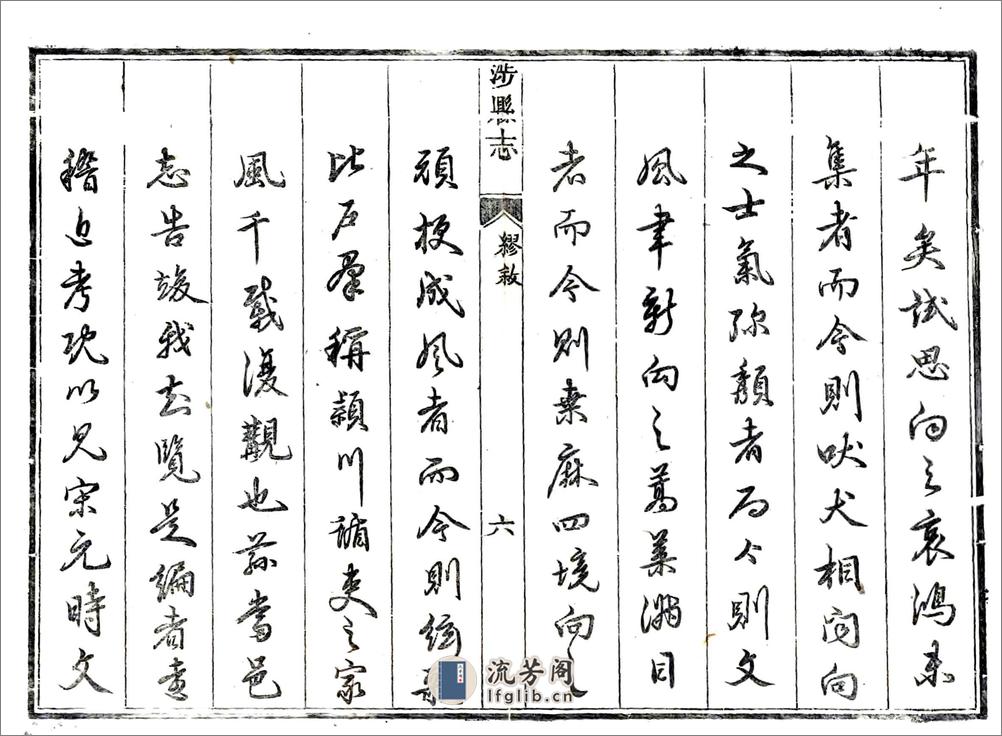 年矣試思向之哀鴻未
集者而今則吠犬相聞向
之士氣弥頽者而今則文
風聿新向之蒿萊滿目
者而今則桑麻四境向之
涉縣志
繆敘
六
頑梗成风者而今則絃歌
比戶羣稱潁川吏之家
風千載復觀也茲當邑
志告竣我覽是編者
稽近考以見宋元時文
流芳阁
lfglib.cn